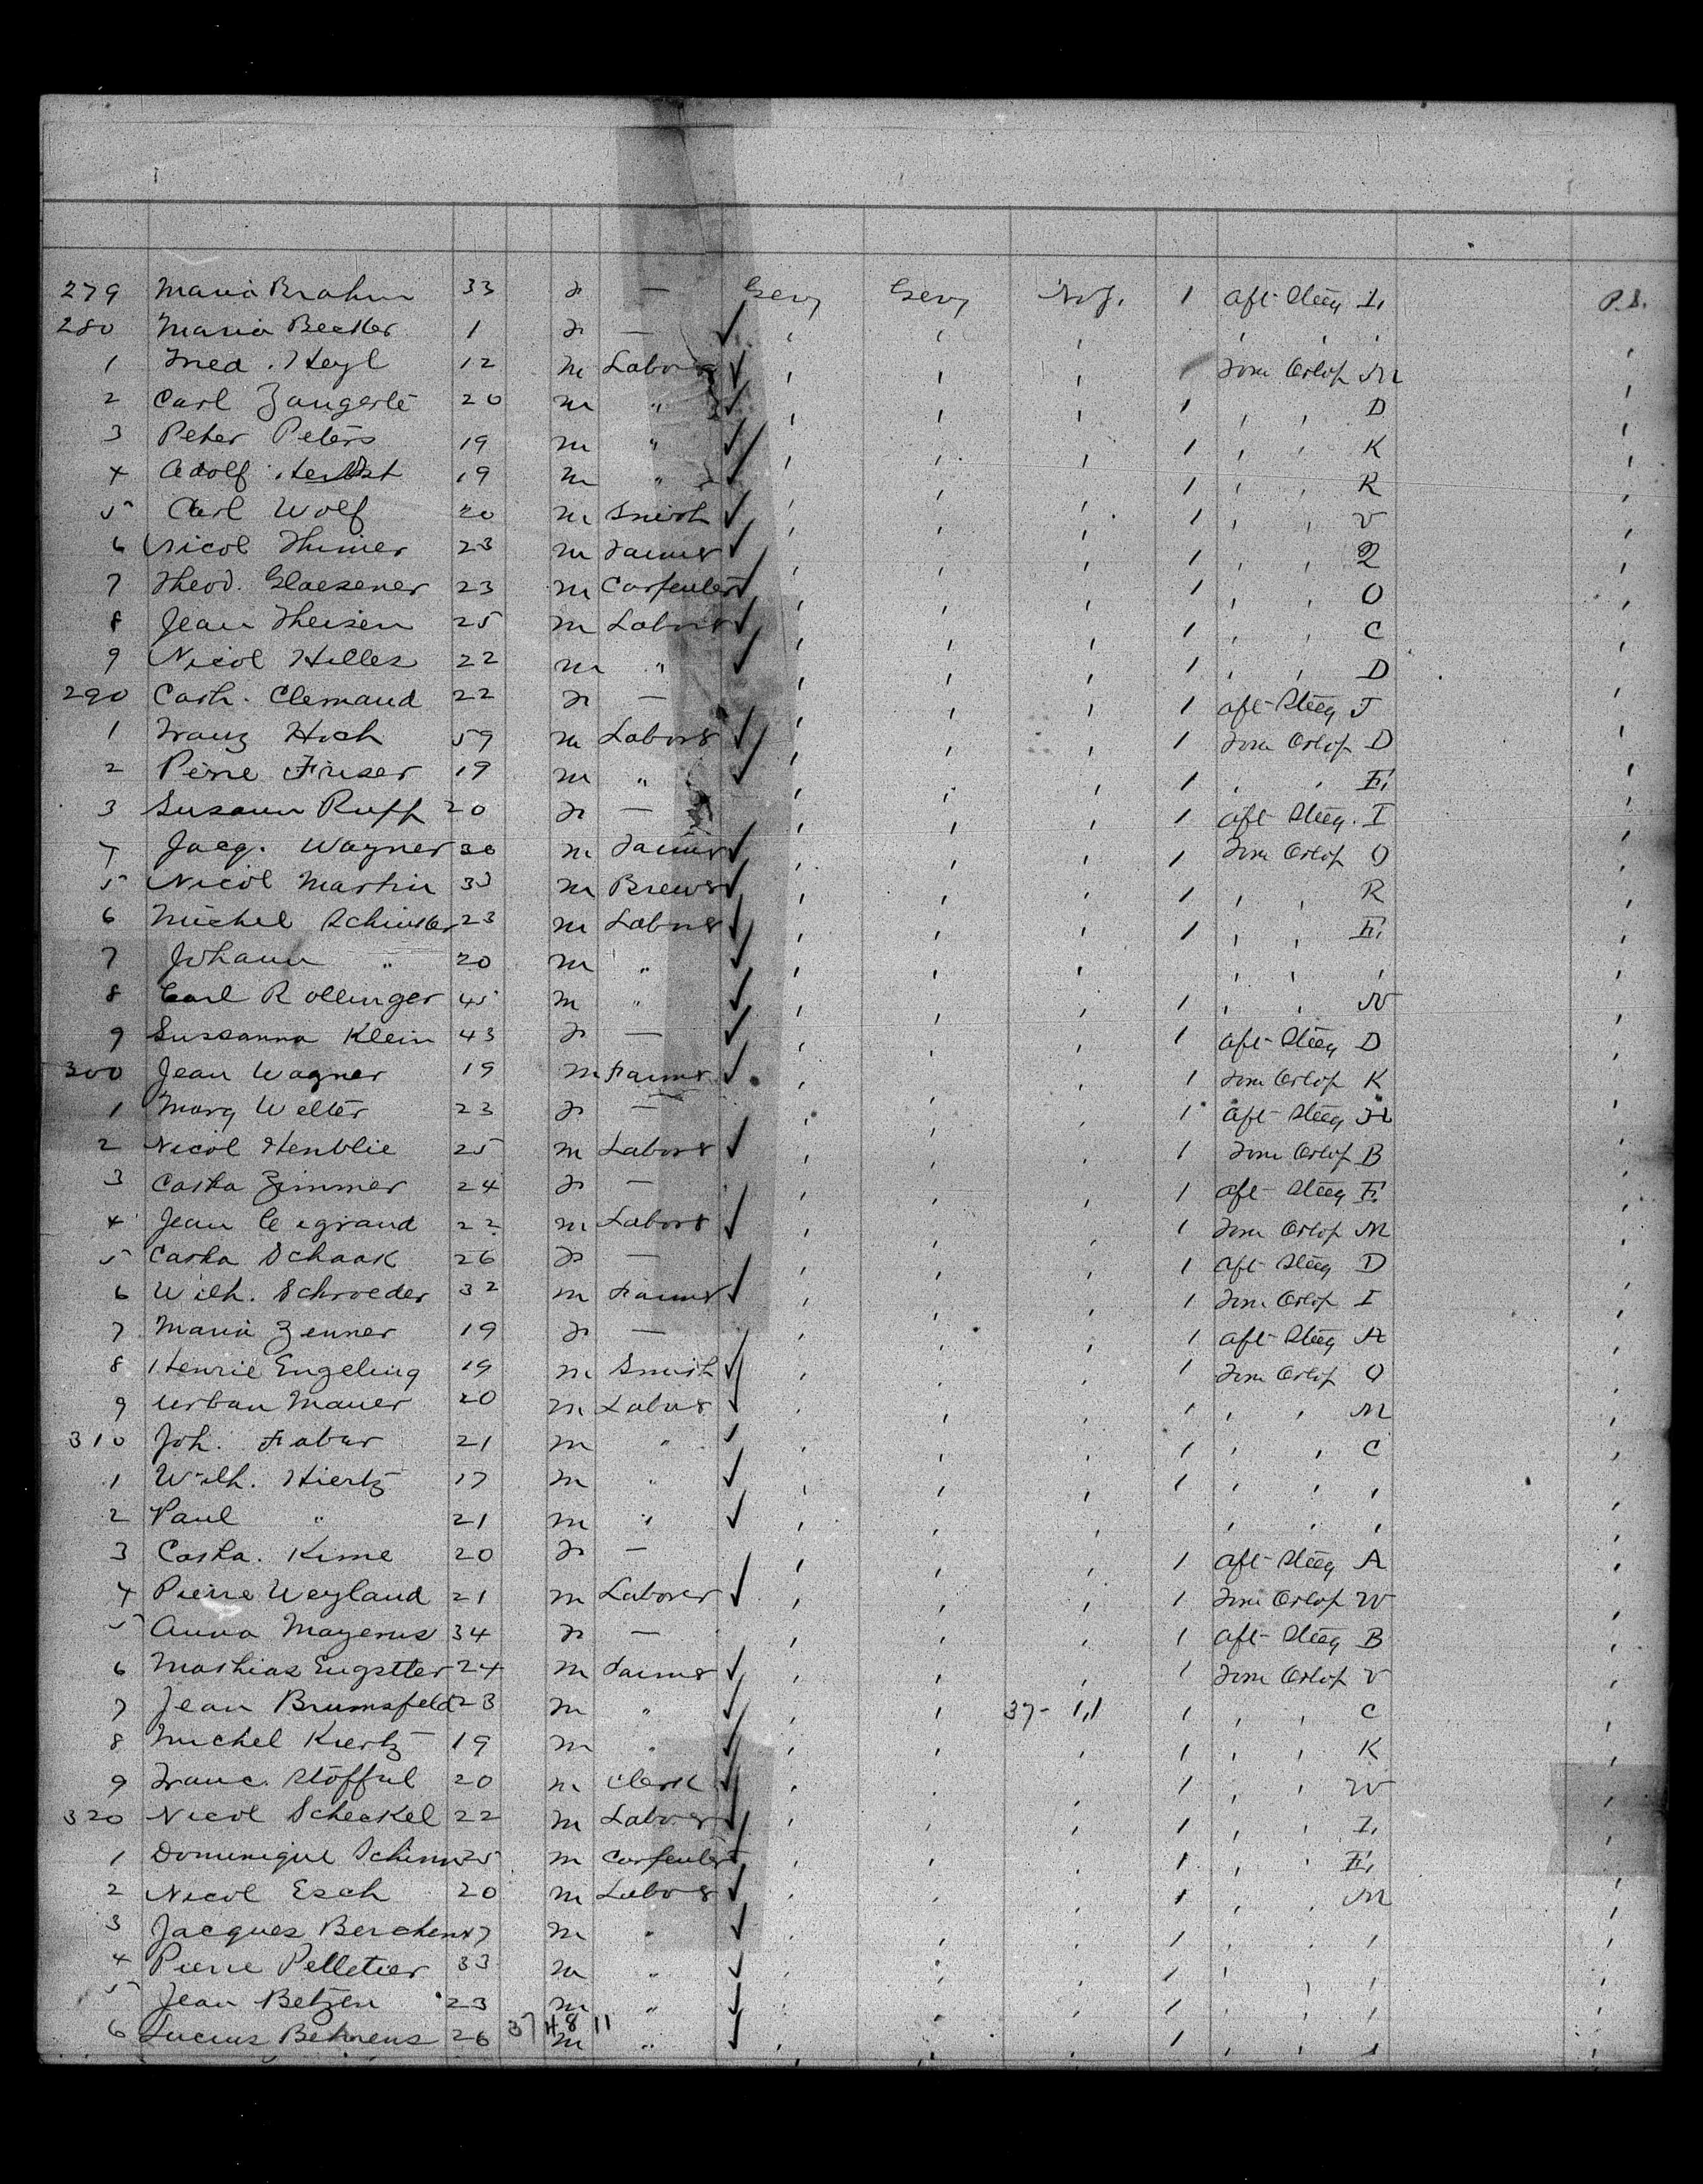 279 Maria Brahm 33 F — Gery Gery N.Y. 1 aft Steeg I, P.S.
280 Maria Becker 1 F — ✓ , , , , , , ,
1 Fred. Heyl 12 m Labor ✓ , , , Fore Orlop M ,
2 Carl Zangerlé 20 m " ✓ , , , 1 , , D ,
3 Peter Peters 19 m " ✓ , , , 1 , , K ,
4 Adolf Herbst 19 m " ✓ , , , 1 , , R ,
5 Carl Wolf 20 m Smith ✓ , , , 1 , , V ,
6 Nicol Thines 23 m Farmer ✓ , , , 1 , , Q ,
7 Theod. Glaesener 23 m Carpenter ✓ , , , 1 , , O ,
8 Jean Theisen 25 m Labors ✓ , , , 1 , , C ,
9 Nicol Hilles 22 m " ✓ , , , 1 , , D ,
290 Cath. Clemaud 22 F — , , , 1 aft Steeg J ,
1 Franz Hoch 59 m Labors ✓ , , , 1 Fore Orlop D ,
2 Pierre Finser 19 m " ✓ , , , 1 , , E, ,
3 Susann Ruff 20 F — , , , 1 aft Steeg. I ,
4 Jacq. Wagner 30 m Farmer ✓ , , , 1 Fore Orlop O ,
5 Nicol Martin 33 m Brewer ✓ , , , 1 , , R ,
6 Michel Schinker 23 m Labors ✓ , , , 1 , , E, ,
7 Johann " 20 m " ✓ , , , , , , ,
8 Carl Rollinger 45 m " ✓ , , , 1 , , N ,
9 Sussanna Klein 43 F — ✓ , , , 1 aft Steeg D ,
300 Jean Wagner 19 m Farmer ✓ , , , 1 Fore Orlop K ,
1 Marg Welter 23 F — , , , 1 aft Steeg H ,
2 Nicol Henblie 25 m Labors ✓ , , , 1 Fore Orlop B ,
3 Catha Zimmer 24 F — , , , 1 aft Steeg E, ,
4 Jean Legrand 22 m Labors ✓ , , , 1 Fore Orlop M ,
5 Catha Schaak 26 F — , , , 1 aft Steeg D ,
6 Wilh. Schroeder 32 m Farmer ✓ , , , 1 Fore Orlop I ,
7 Maria Zenner 19 F — , , , 1 aft Steeg A ,
8 Henrie Engeling 19 m Smith ✓ , , , 1 Fore Orlop O ,
9 Urban Mauer 20 m Labors ✓ , , , 1 , , M ,
310 Joh. Faber 21 m " ✓ , , , 1 , , C ,
1 Wilh. Hiertz 17 m " ✓ , , , 1 , , , ,
2 Paul " 21 m " ✓ , , , , , , ,
3 Catha. Kime 20 F — , , , 1 aft Steeg A ,
4 Pierre Weyland 21 m Laborer ✓ , , , 1 Fore Orlop W ,
5 Anna Mayerus 34 F — , , , 1 aft Steeg B ,
6 Mathias Engstter 24 m Farmer ✓ , , , 1 Fore Orlop V ,
7 Jean Brumsfeld 23 m " ✓ , , 37- 1,1 1 , , C ,
8 Michel Kiertz 19 m " ✓ , , , 1 , , K ,
9 Franc. Stofful 20 m Clerk ✓ , , , 1 , , W ,
320 Nicol Scheckel 22 m Laborer ✓ , , , 1 , , I, ,
1 Dominique Schim 25 m Carpenter , , , 1 , , E, ,
2 Nicol Esch 20 m Labors ✓ , , , 1 , , M ,
3 Jacques Berchem 47 m " ✓ , , , 1 , , , ,
4 Pierre Pelletier 33 m " ✓ , , , 1 , , , ,
5 Jean Betzen 23 m " ✓ , , , 1 , , , ,
6 Lucius Behrens 26 37 H 8 11 m " ✓ , , , 1 , , , ,